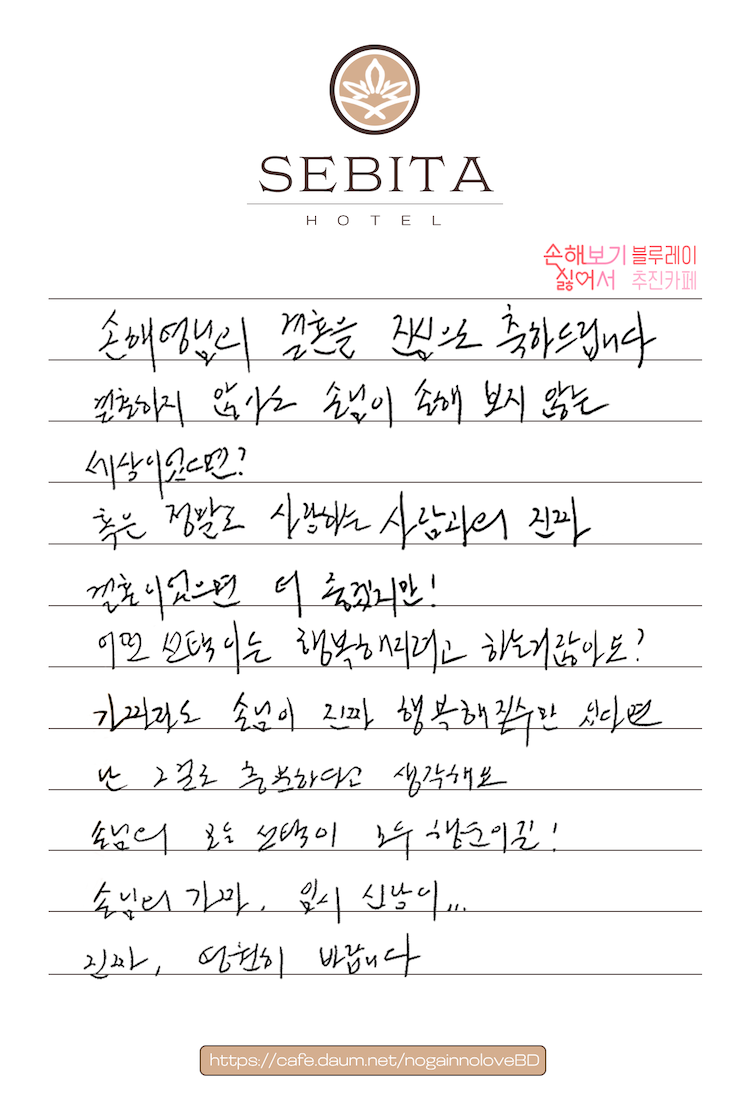 SEBITA
HOTEL
손해보기 블루레이
싫어서 추진카페
손해영님의 결혼을 진심으로 축하드립니다
결혼하지 않아도 손님이 손해 보지 않는
세상이었다면?
혹은 정말로 사랑하는 사람과의 진짜
결혼이었으면 더 좋겠지만!
어떤 선택이든 행복해지려고 하는거잖아요?
가짜라도 손님이 진짜 행복해질수만 있다면
난 그걸로 충분하다고 생각해요
손님의 모든 선택이 모두 행운이길!
손님의 가짜, 임시 신랑이...
진짜, 영원히 바랍니다
https://cafe.daum.net/nogainnoloveBD